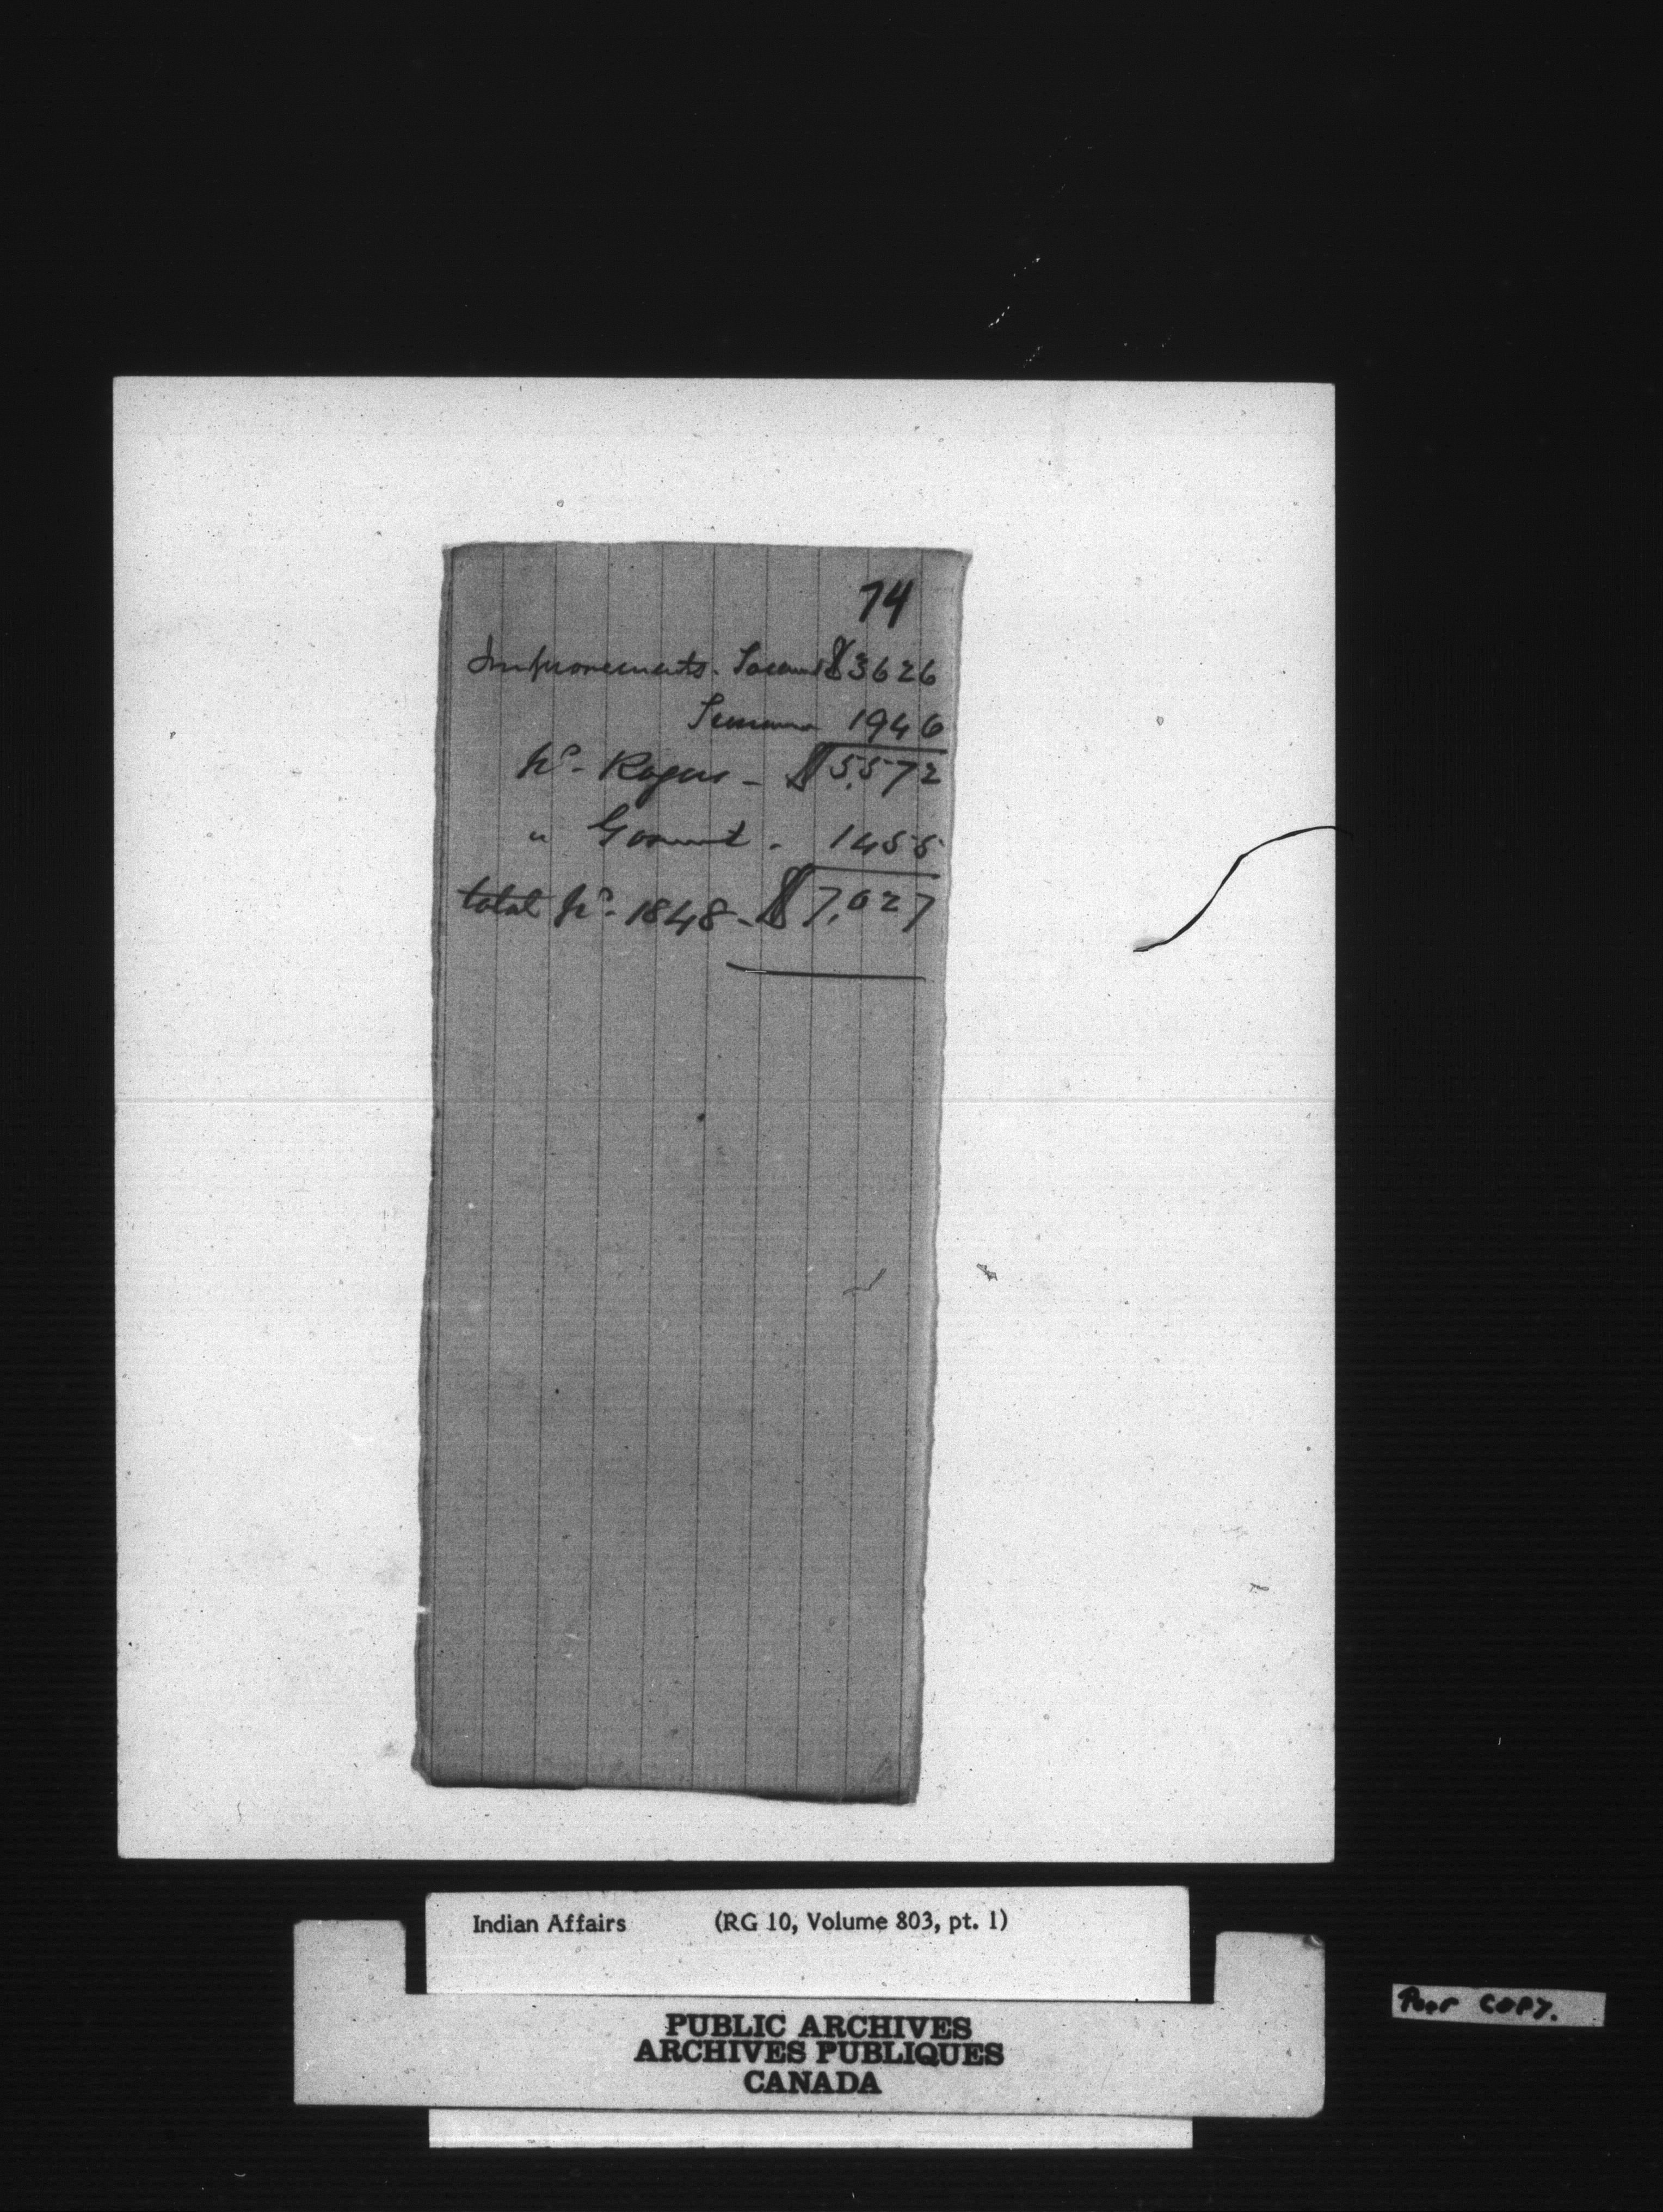 74
Improvements. $3626
1946
pr. Rogers - $5,572
" Govmnt. 1455
total pr. 1848 - $7,027
Indian Affairs (RG 10, Volume 803, pt. 1)
PUBLIC ARCHIVES
ARCHIVES PUBLIQUES
CANADA
Poor COPY.